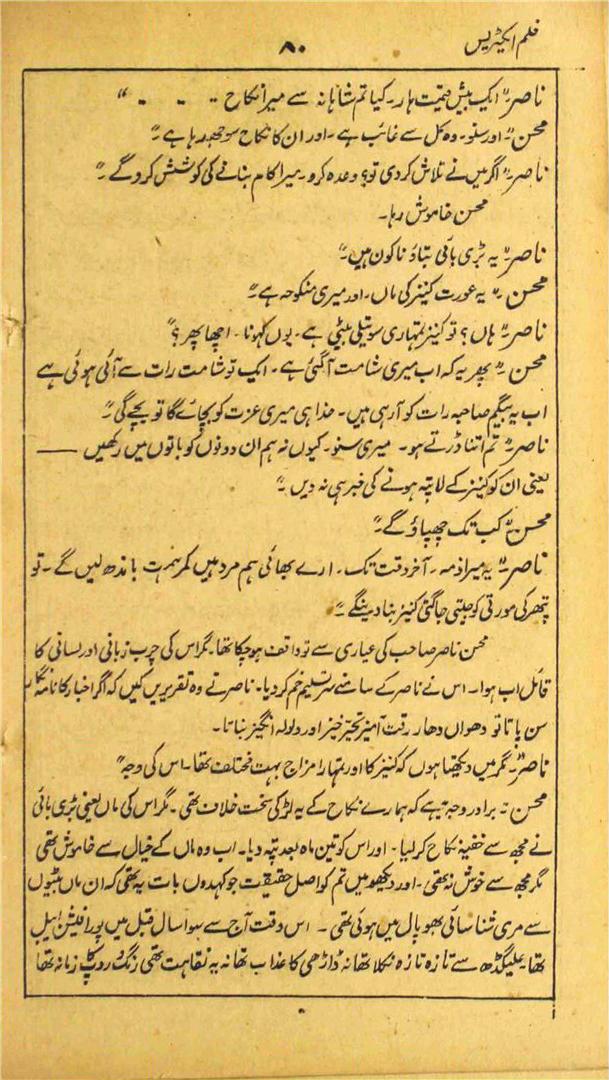 فلم ایکٹریس
۸۰
ناصر۔" ایک بیش قیمت ہار۔ کیا تم شاہانہ سے میرا نکاح - - - "
محسن۔" اور سنو۔ وہ کل سے غائب ہے۔ اور ان کا نکاح سوجھ رہا ہے۔"
ناصر۔" اگر میں نے تلاش کر دی تو؟ وعدہ کرو۔ میرا کام بنانے کی کوشش کرو گے۔"
محسن خاموش رہا۔
ناصر۔" یہ بڑی بائی بتاؤ نا کون ہیں۔"
محسن۔" یہ عورت کنیز کی ماں۔ اور میری منکوحہ ہے۔"
ناصر۔" ہاں؟ تو کنیز تمہاری سوتیلی بیٹی ہے۔ یوں کہو نا۔ اچھا پھر؟"
محسن۔" پھر یہ کہ اب میری شامت آگئی ہے۔ ایک تو شامت رات سے آئی ہوئی ہے
اب یہ بیگم صاحبہ رات کو آرہی ہیں۔ خدا ہی میری عزت کو بچائے گا تو بچے گی۔"
ناصر۔" تم اتنا ڈرتے ہو۔ میری سنو۔ کیوں نہ ہم ان دونوں کو باتوں میں رکھیں ——
یعنی ان کو کنیز کے لاپتہ ہونے کی خبر ہی نہ دیں۔"
محسن۔" کب تک چھپاؤ گے۔"
ناصر۔" یہ میرا ذمہ۔ آخر وقت تک۔ ارے بھائی ہم مرد ہیں کمر ہمت باندھ لیں گے۔ تو
پتھر کی مورتی کو جیتی جاگتی کنیز بنا دینگے۔"
محسن ناصر صاحب کی عیاری سے تو واقف ہو چکا تھا۔ مگر اس کی چرب زبانی اور لسانی کا
قائل اب ہوا۔ اس نے ناصر کے سامنے سر تسلیم خم کر دیا۔ ناصر نے وہ تقریریں کیں کہ اگر اخبار کا نامہ نگار
سن پاتا تو دھواں دھار رقت آمیز تحیّر خیز اور ولولہ انگیز بناتا۔
ناصر۔" مگر میں دیکھتا ہوں کہ کنیز کا اور تمہارا مزاج بہت مختلف تھا۔ اس کی وجہ"
محسن۔" برادر وجہ یہ ہے کہ ہمارے نکاح کے یہ لڑکی سخت خلاف تھی۔ مگر اس کی ماں یعنی بڑی بائی
نے مجھ سے خفیہ نکاح کر لیا۔ اور اس کو تین ماہ بعد پتہ دیا۔ اب وہ ماں کے خیال سے خاموش تھی
مگر مجھ سے خوش نہ تھی۔ اور دیکھو میں تم کو اصل حقیقت جو کہدوں بات یہ تھی کہ ان ماں بیٹیوں
سے مری شناسائی بھوپال میں ہوئی تھی۔ اس وقت آج سے سوا سال قبل میں پورا فیشن ایبل
تھا۔ علیگڈھ سے تازہ تازہ نکلا تھا نہ ڈاڑھی کا عذاب تھا نہ یہ نقاہت تھی رنگ و روپ کا زمانہ تھا